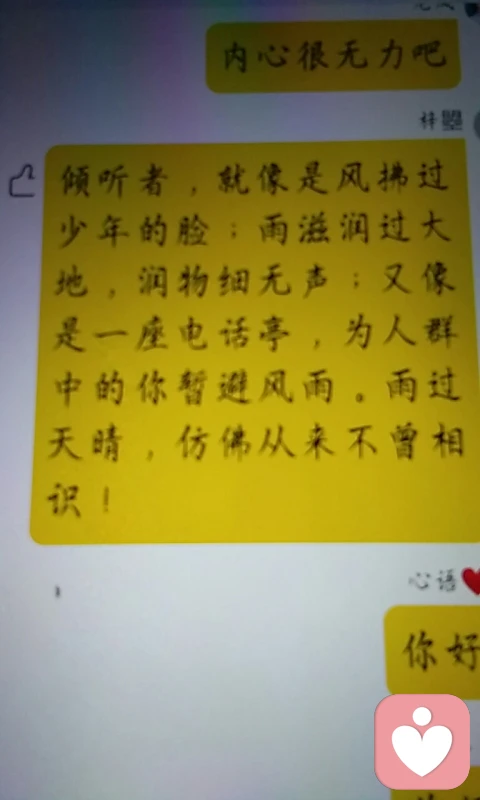 内心很无力吧
倾听者，就像是风拂过
少年的脸；雨滋润过大
地，润物细无声；又像
是一座电话亭，为人群
中的你暂避风雨。雨过
天晴，仿佛从来不曾相
识！
心语❤
你好